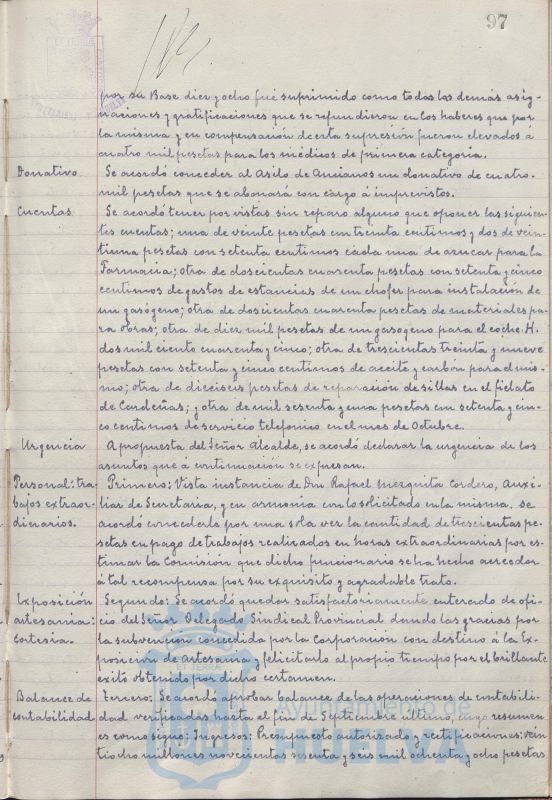 97
por su Base diez y ocho fué suprimido como todas las demás asig-
naciones y gratificaciones que se refundieron en los haberes que por
la misma y en compensación de esta supresión fueron elevados á
cuatro mil pesetas para los médicos de primera categoria.
Donativo
Se acordó conceder al Asilo de Ancianos un donativo de cuatro-
mil pesetas que se abonará con cargo á imprevistos.
Cuentas
Se acordó tener por vistas sin reparo alguno que oponer las siguien-
tes cuentas; una de veinte pesetas con treinta centimos y dos de vein-
tiuna pesetas con setenta centimos cada una de azucar para la
Farmacia; otra de doscientas cuarenta pesetas con setenta y cinco
centimos de gastos de estancias de un chofer para instalación de
un gasógeno; otra de doscientas cuarenta pesetas de materiales pa-
ra obras; otra de diez mil pesetas de un gasogeno para el coche H.
dos mil ciento cuarenta y cinco; otra de trescientas treinta y nueve
pesetas con setenta y cinco centimos de aceite y carbón para el mis-
mo; otra de dieciseis pesetas de reparación de sillas en el fielato
de Cardeñas; y otra de mil sesenta y una pesetas con setenta y cin-
co centimos de servicio telefonico en el mes de Octubre.
Urgencia
A propuesta del Señor Alcalde, se acordó declarar la urgencia de los
asuntos que á continuación se expresan.
Personal: tra-
bajos extraor-
dinarios.
Primero: Vista instancia de Don Rafael Mezquita Cordero, Auxi-
liar de Secretaria, y en armonia con lo solicitado en la misma, se
acordó concederle por una sola vez la cantidad de trescientas pe-
setas en pago de trabajos realizados en horas extraordinarias por es-
timar la Comisión que dicho funcionario se ha hecho acreedor
á tal recompensa por su exquisito y agradable trato.
Exposición
artesania:
cortesia.
Segundo: Se acordó quedar satisfactoriamente enterado de ofi-
cio del Señor Delegado Sindical Provincial dando las gracias por
la subvención concedida por la Corporación con destino á la Ex-
posición de Artesania y felicitarlo al propio tiempo por el brillante
exito obtenido por dicho certamen.
Balance de
contabilidad
Tercero: Se acordó aprobar balance de las operaciones de contabili-
dad verificadas hasta el fin de Septiembre último, cuyo resumen
es como sigue: Ingresos: Presupuesto autorizado y rectificaciones: vein-
tiocho millones novecientas sesenta y seis mil ochenta y ocho pesetas
Ayuntamiento de
HUELVA